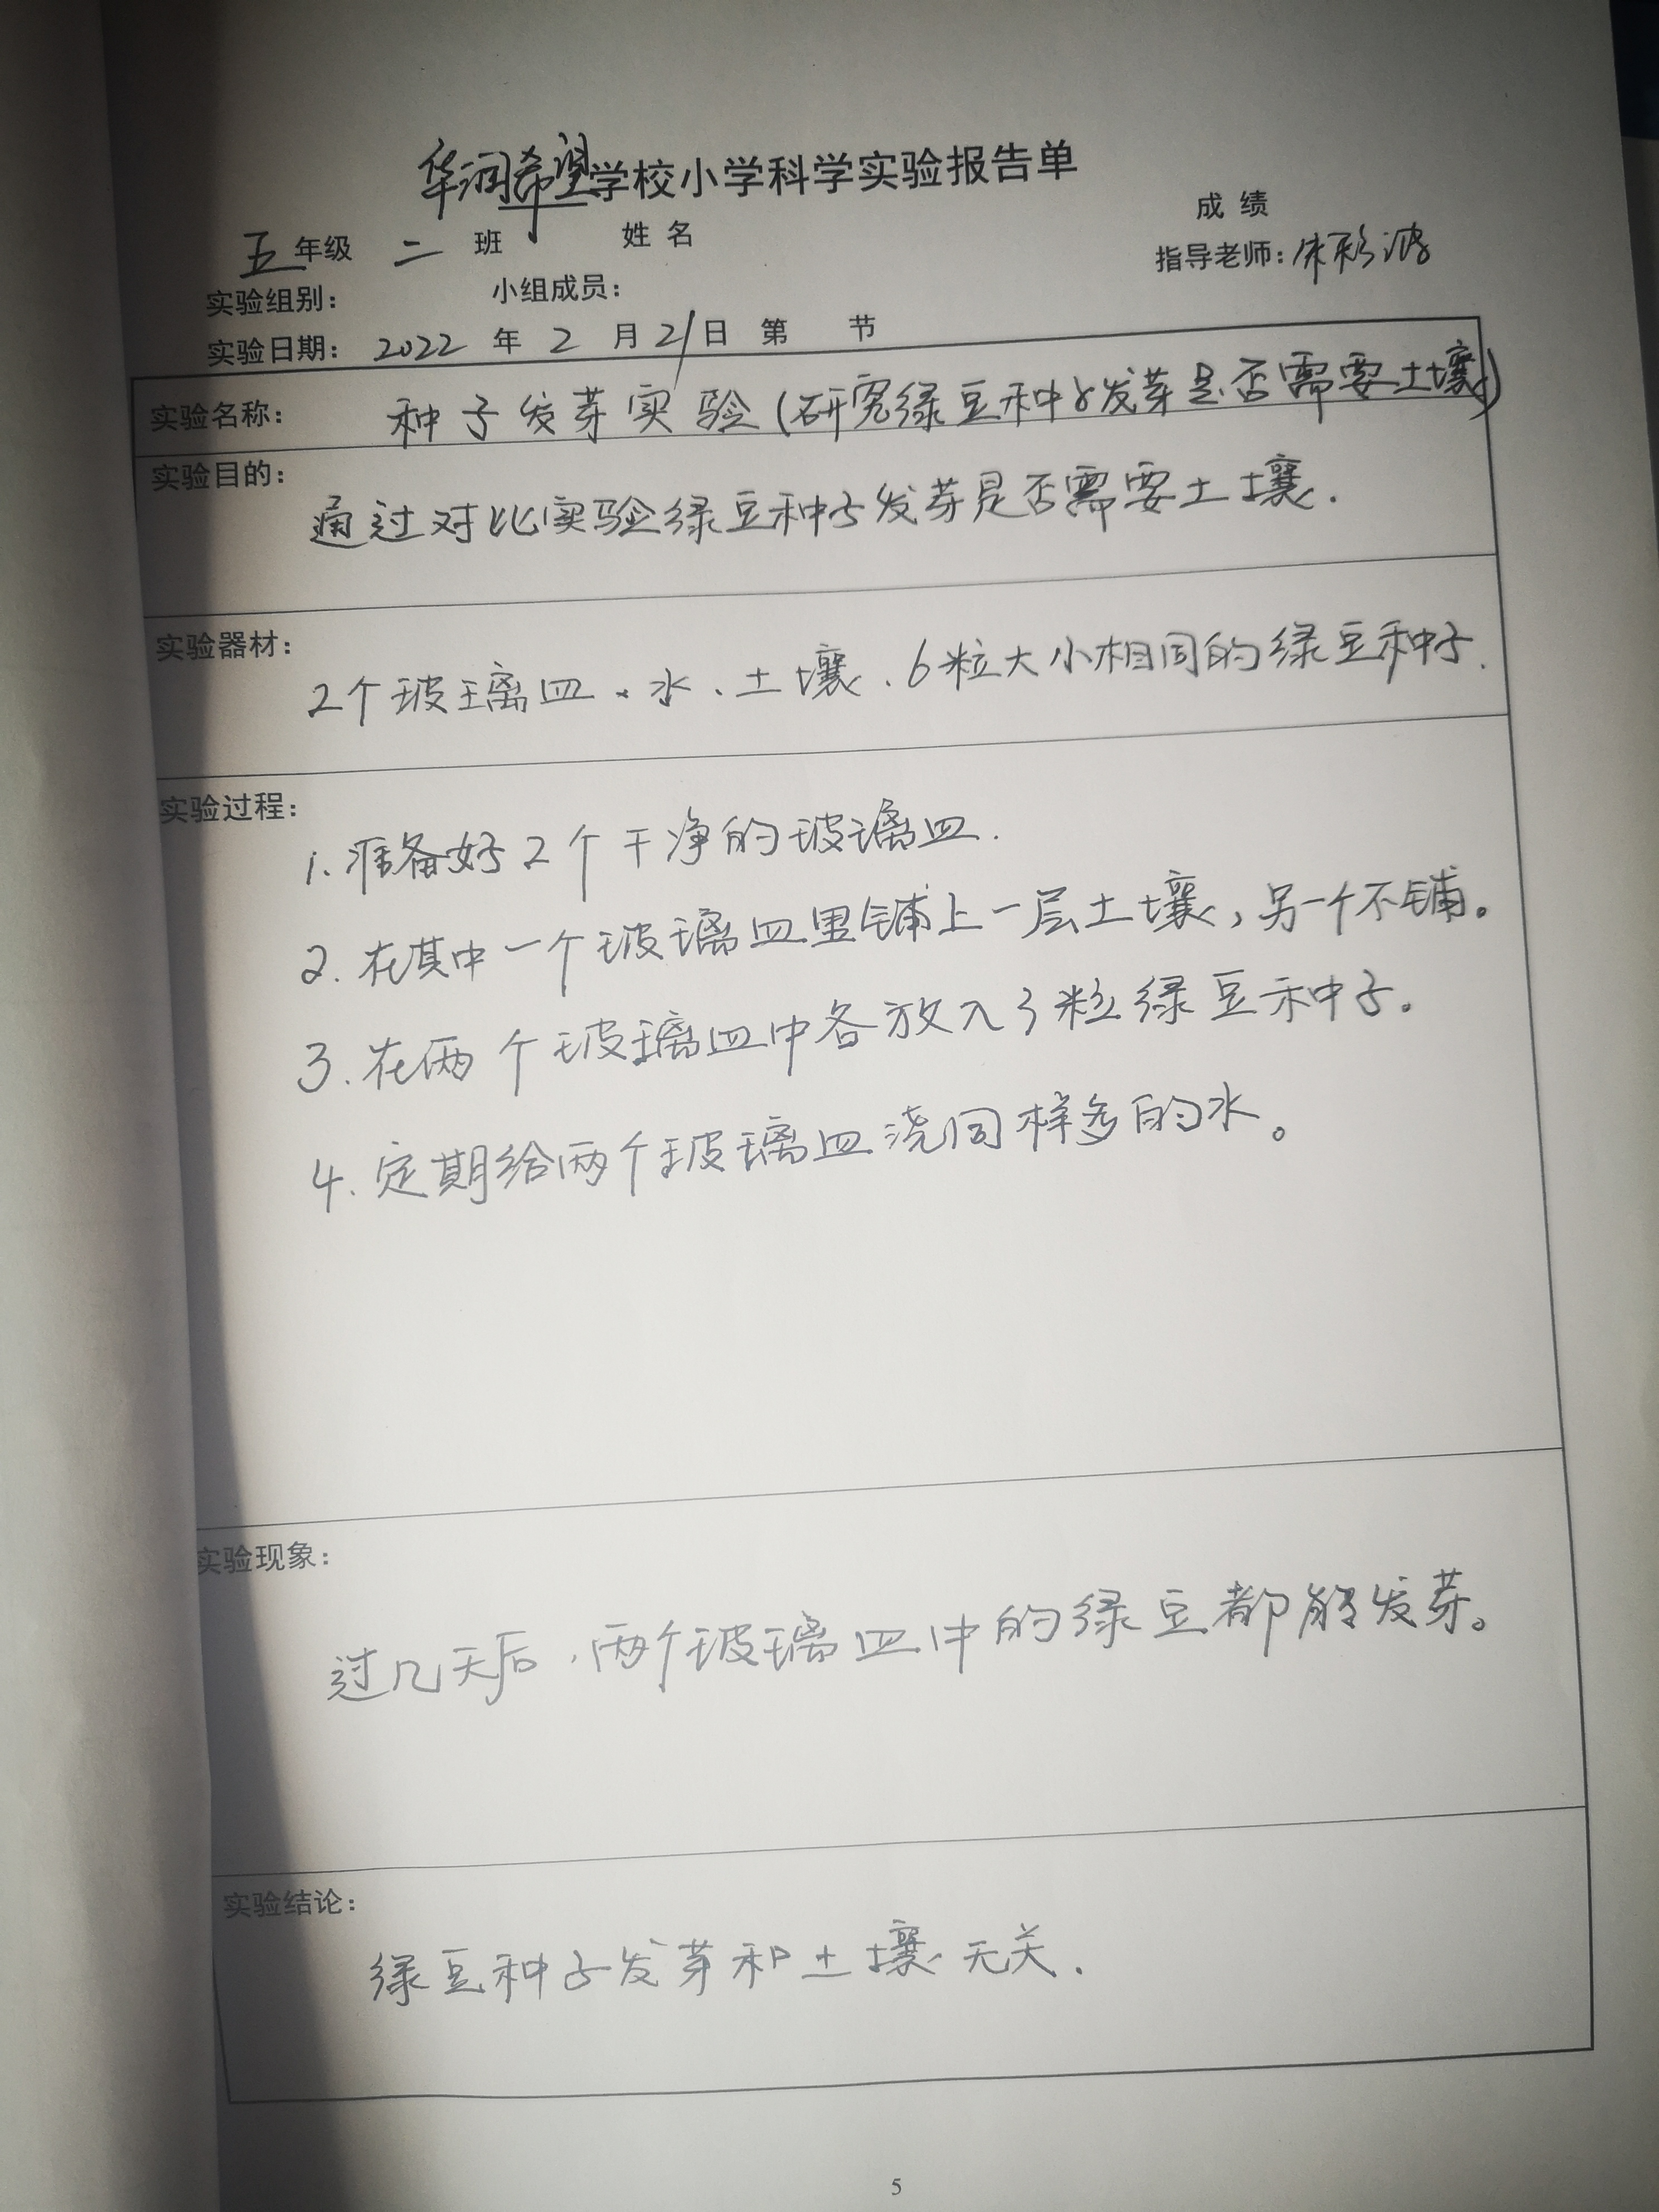 华润希望学校小学科学实验报告单
成绩
五年级 二 班 姓名
指导老师:朱彩
实验组别: 小组成员:
实验日期: 2022 年 2 月 21 日 第 节
实验名称: 种子发芽实验(研究绿豆种子发芽是否需要土壤)
实验目的:
通过对比实验绿豆种子发芽是否需要土壤.
实验器材:
2个玻璃皿、水、土壤、6粒大小相同的绿豆种子.
实验过程:
1.准备好2个干净的玻璃皿.
2.在其中一个玻璃皿里铺上一层土壤,另一个不铺。
3.在两个玻璃皿中各放入3粒绿豆种子。
4.定期给两个玻璃皿浇同样多的水。
实验现象:
过几天后,两个玻璃皿中的绿豆都能发芽。
实验结论:
绿豆种子发芽和土壤无关.
5